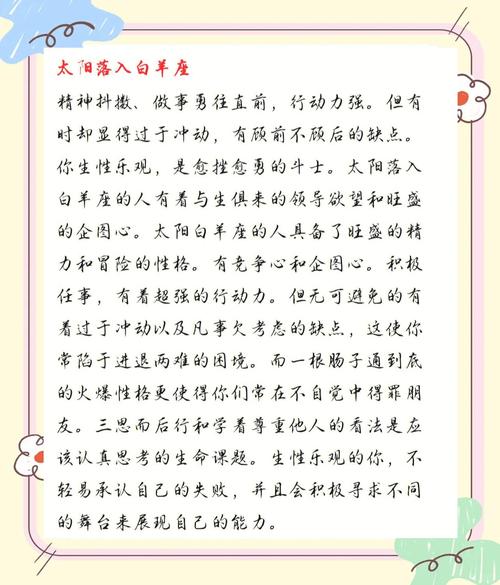 太阳落入白羊座
精神抖擞、做事勇往直前，行动力强。但有
时却显得过于冲动，有顾前不顾后的缺点。
你生性乐观，是愈挫愈勇的斗士。太阳落入
白羊座的人有着与生俱来的领导欲望和旺盛
的企图心。太阳白羊座的人具备了旺盛的精
力和冒险的性格。有竞争心和企图心。积极
任事，有着超强的行动力。但无可避免的有
着过于冲动以及凡事欠考虑的缺点，这使你
常陷于进退两难的困境。而一根肠子通到底
的火爆性格更使得你们常在不自觉中得罪朋
友。三思而后行和学着尊重他人的看法是应
该认真思考的生命课题。生性乐观的你，不
轻易承认自己的失败，并且会积极寻求不同
的舞台来展现自己的能力。